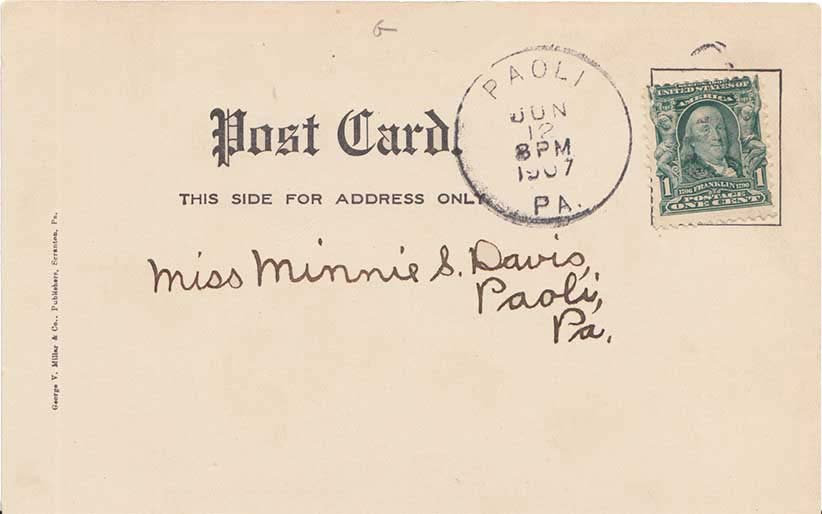 G
Post Card.
THIS SIDE FOR ADDRESS ONLY
PAOLI
JUN
12
8 PM
1907
PA.
UNITED STATES OF
AMERICA
1 1
1706 FRANKLIN 1790
POSTAGE
ONE CENT
Miss Minnie S. Davis,
Paoli,
Pa.
George V. Millar & Co., Publishers, Scranton, Pa.